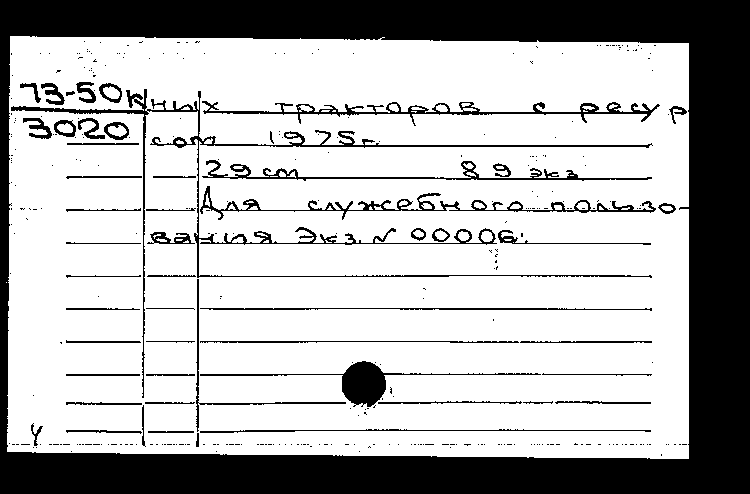 73-50к
3020
ных тракторов с ресур
сом 1975г.
29 ст. 89 экз
Для служебного пользо-
вания. Экз. № 00006.